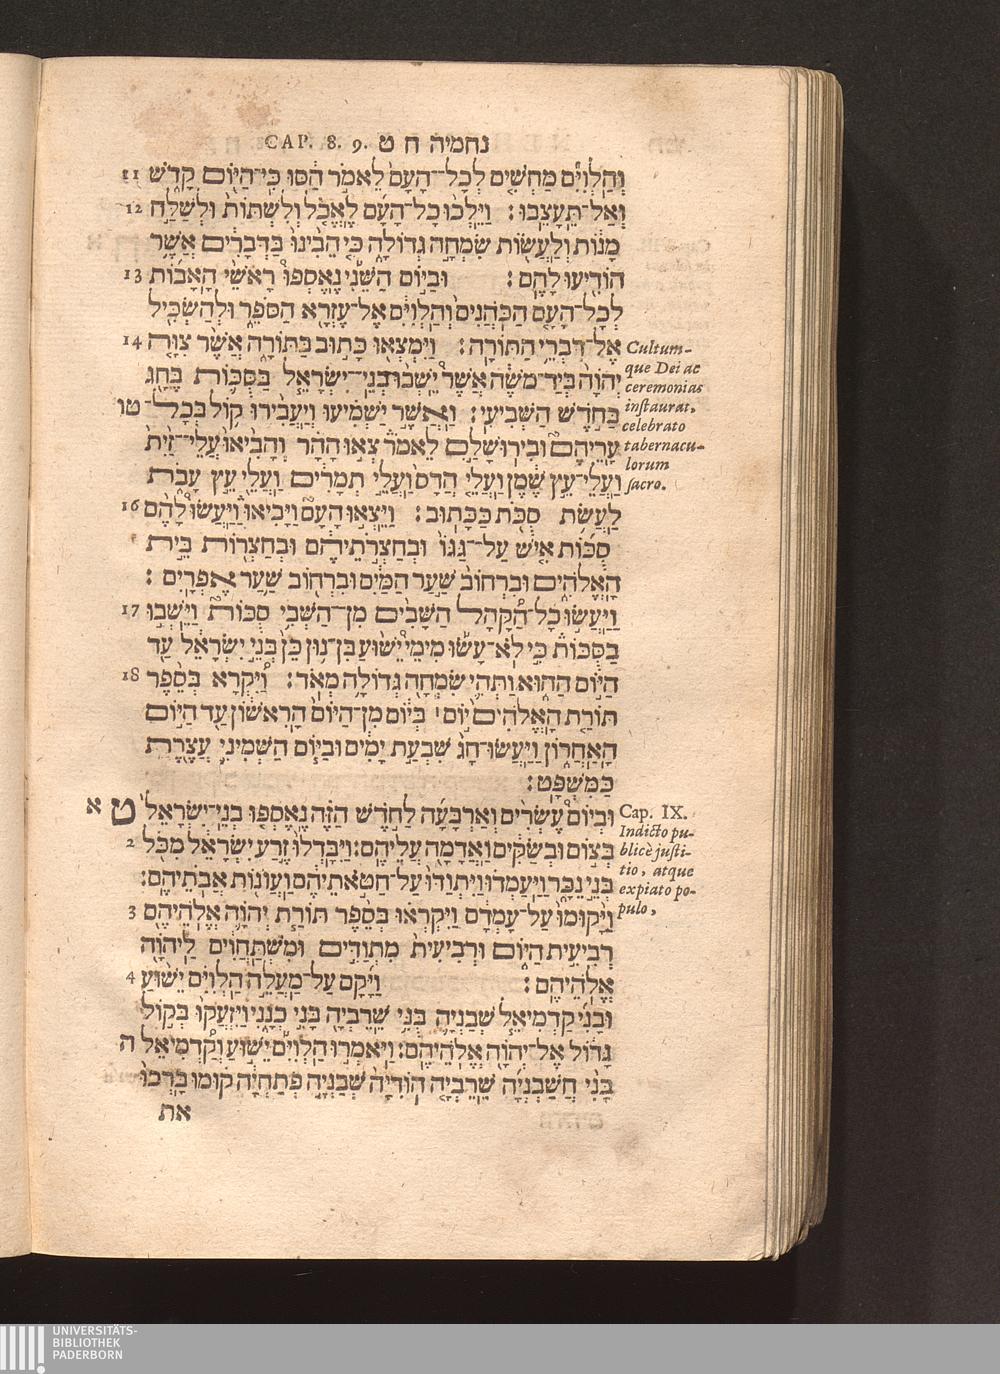 נחמיה ח ט CAP. 8. 9.
וְהַלְוִיִּם מַחְשִׁים לְכָל־הָעָם לֵאמֹר הַסּוּ כִּי־הַיּוֹם קָדֹשׁ 11
וְאַל־תֵּעָצֵבוּ׃ וַיֵּלְכוּ כָל־הָעָם לֶאֱכֹל וְלִשְׁתּוֹת וּלְשַׁלַּח 12
מָנוֹת וְלַעֲשׂוֹת שִׂמְחָה גְדוֹלָה כִּי הֵבִינוּ בַּדְּבָרִים אֲשֶׁר
הוֹדִיעוּ לָהֶם׃ וּבַיּוֹם הַשֵּׁנִי נֶאֶסְפוּ רָאשֵׁי הָאָבוֹת 13
לְכָל־הָעָם הַכֹּהֲנִים וְהַלְוִיִּם אֶל־עֶזְרָא הַסֹּפֵר וּלְהַשְׂכִּיל
אֶל־דִּבְרֵי הַתּוֹרָה׃ וַיִּמְצְאוּ כָּתוּב בַּתּוֹרָה אֲשֶׁר צִוָּה 14
יְהֹוָה בְּיַד־מֹשֶׁה אֲשֶׁר יֵשְׁבוּ בְנֵי־יִשְׂרָאֵל בַּסֻּכּוֹת בֶּחָג
בַּחֹדֶשׁ הַשְּׁבִיעִי׃ וַאֲשֶׁר יַשְׁמִיעוּ וְיַעֲבִירוּ קוֹל בְּכָל־ טו
עָרֵיהֶם וּבִירוּשָׁלִַם לֵאמֹר צְאוּ הָהָר וְהָבִיאוּ עֲלֵי־זַיִת
וַעֲלֵי־עֵץ שֶׁמֶן וַעֲלֵי הֲדַס וַעֲלֵי תְמָרִים וַעֲלֵי עֵץ עָבֹת
לַעֲשֹׂת סֻכֹּת כַּכָּתוּב׃ וַיֵּצְאוּ הָעָם וַיָּבִיאוּ וַיַּעֲשׂוּ לָהֶם 16
סֻכּוֹת אִישׁ עַל־גַּגּוֹ וּבְחַצְרֹתֵיהֶם וּבְחַצְרוֹת בֵּית
הָאֱלֹהִים וּבִרְחוֹב שַׁעַר הַמַּיִם וּבִרְחוֹב שַׁעַר אֶפְרָיִם׃
וַיַּעֲשׂוּ כָל־הַקָּהָל הַשָּׁבִים מִן־הַשְּׁבִי סֻכּוֹת וַיֵּשְׁבוּ 17
בַסֻּכּוֹת כִּי לֹא־עָשׂוּ מִימֵי יֵשׁוּעַ בִּן־נוּן כֵּן בְּנֵי יִשְׂרָאֵל עַד
הַיּוֹם הַהוּא וַתְּהִי שִׂמְחָה גְּדוֹלָה מְאֹד׃ וַיִּקְרָא בְּסֵפֶר 18
תּוֹרַת הָאֱלֹהִים יוֹם׀ בְּיוֹם מִן־הַיּוֹם הָרִאשׁוֹן עַד הַיּוֹם
הָאַחֲרוֹן וַיַּעֲשׂוּ־חָג שִׁבְעַת יָמִים וּבַיּוֹם הַשְּׁמִינִי עֲצֶרֶת
כַּמִּשְׁפָּט׃
וּבְיוֹם עֶשְׂרִים וְאַרְבָּעָה לַחֹדֶשׁ הַזֶּה נֶאֶסְפוּ בְנֵי־יִשְׂרָאֵל ט א
בְּצוֹם וּבְשַׂקִּים וַאֲדָמָה עֲלֵיהֶם׃ וַיִּבָּדְלוּ זֶרַע יִשְׂרָאֵל מִכֹּל 2
בְּנֵי נֵכָר וַיַּעַמְדוּ וַיִּתְוַדּוּ עַל־חַטֹּאתֵיהֶם וַעֲוֹנוֹת אֲבֹתֵיהֶם׃
וַיָּקוּמוּ עַל־עָמְדָם וַיִּקְרְאוּ בְּסֵפֶר תּוֹרַת יְהֹוָה אֱלֹהֵיהֶם 3
רְבִיעִית הַיּוֹם וּרְבִיעִית מִתְוַדִּים וּמִשְׁתַּחֲוִים לַיהֹוָה
אֱלֹהֵיהֶם׃ וַיָּקָם עַל־מַעֲלֵה הַלְוִיִּם יֵשׁוּעַ 4
וּבָנִי קַדְמִיאֵל שְׁבַנְיָה בֻּנִּי שֵׁרֵבְיָה בָּנִי כְנָנִי וַיִּזְעֲקוּ בְּקוֹל
גָּדוֹל אֶל־יְהֹוָה אֱלֹהֵיהֶם׃ וַיֹּאמְרוּ הַלְוִיִּם יֵשׁוּעַ וְקַדְמִיאֵל ה
בָּנִי חֲשַׁבְנְיָה שֵׁרֵבְיָה הוֹדִיָּה שְׁבַנְיָה פְתַחְיָה קוּמוּ בָּרְכוּ
את
Cultum-
que Dei ac
ceremonias
instaurat,
celebrato
tabernacu-
lorum
sacro.
Cap. IX.
Indicto pu-
blicè justi-
tio, atque
expiato po-
pulo,
UNIVERSITÄTS-
BIBLIOTHEK
PADERBORN